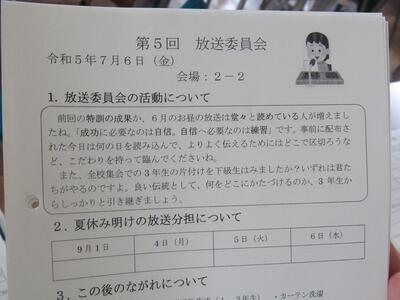 第5回 放送委員会
令和5年7月6日（金）
会場：2－2
1. 放送委員会の活動について
前回の特訓の成果か、6月のお昼の放送は堂々と読めている人が増えまし
たね。「成功に必要なのは自信。自信へ必要なのは練習」です。事前に配布さ
れた今日は何の日を読み込んで、よりよく伝えるためにはどこで区切ろうな
ど、こだわりを持って臨んでくださいね。
また、全校集会での3年生の片付けを下級生はみましたか？いずれは君た
ちがやるのですよ。良い伝統として、何をどこにかたづけるのか、3年生か
らしっかりと引き継ぎましょう。
2. 夏休み明けの放送分担について
9月1日 4日（月） 5日（火） 6日（水）
3. この後のながれについて
・カーテン洗濯